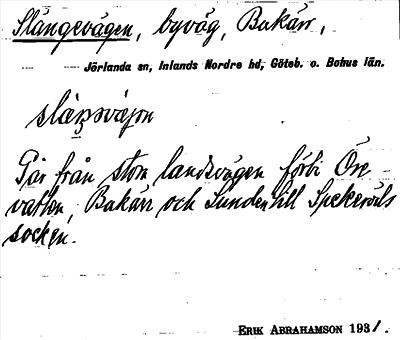 Slängevägen, byväg, Bakärr,
Jörlanda sn, Inlands Nordre hd, Göteb. o. Bohus län.
Går från stora landsvägen förbi Öre-
vatten, Bakärr och Lunden till Spekeröds
socken.
ERIK ABRAHAMSON 1931.